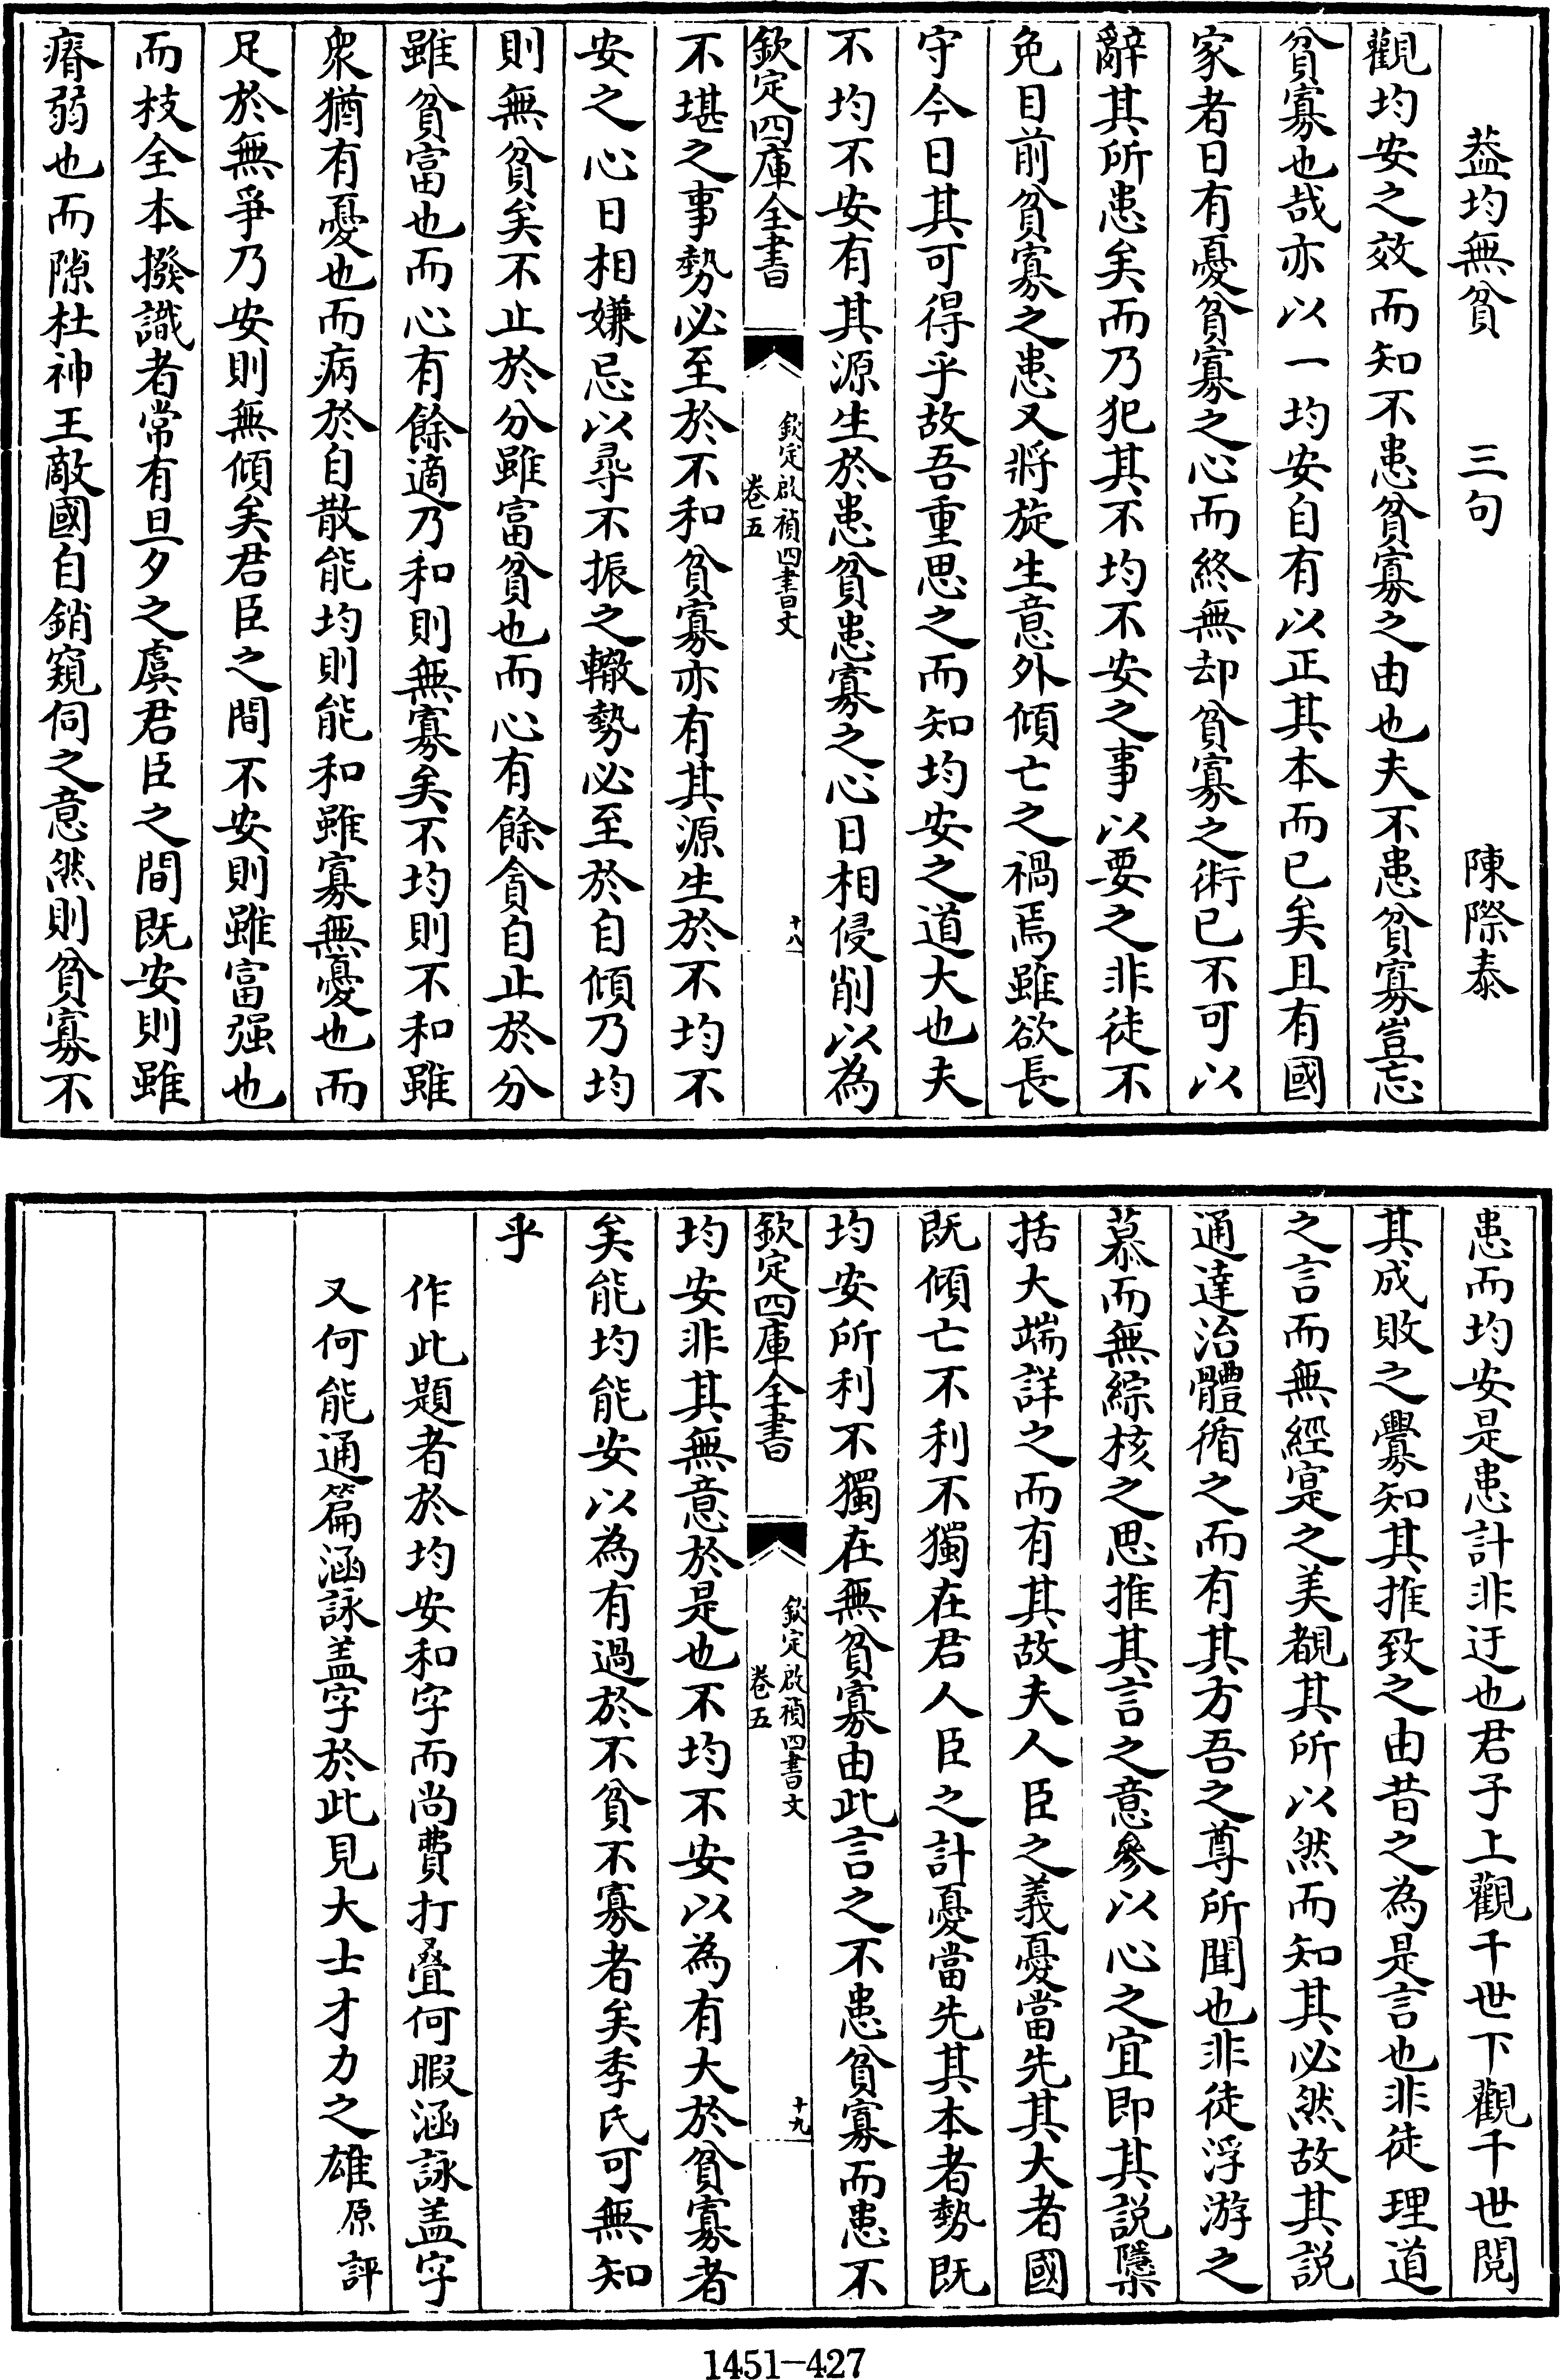 葢均無貧　三句　陳際泰
觀均安之效而知不患貧寡之由也夫不患貧寡豈忘
貧寡也哉亦以一均安自有以正其本而已矣且有國
家者日有憂貧寡之心而終無却貧寡之術已不可以
辭其所患矣而乃犯其不均不安之事以要之非徒不
免目前貧寡之患又將旋生意外傾亡之禍焉雖欲長
守今日其可得乎故吾重思之而知均安之道大也夫
不均不安有其源生於患貧患寡之心日相侵削以為
欽定四庫全書
欽定啟禎四書文
卷五
十八
不堪之事勢必至於不和貧寡亦有其源生於不均不
安之心日相嫌忌以尋不振之轍勢必至於自傾乃均
則無貧矣不止於分雖富貧也而心有餘貪自止於分
雖貧富也而心有餘適乃和則無寡矣不均則不和雖
衆猶有憂也而病於自散能均則能和雖寡無憂也而
足於無爭乃安則無傾矣君臣之間不安則雖富强也
而枝全本撥識者常有旦夕之虞君臣之間既安則雖
瘠弱也而隙杜神王敵國自銷窺伺之意然則貧寡不
患而均安是患計非迂也君子上觀千世下觀千世閱
其成敗之釁知其推致之由昔之為是言也非徒理道
之言而無經寔之美覩其所以然而知其必然故其說
通達治體循之而有其方吾之尊所聞也非徒浮游之
慕而無綜核之思推其言之意參以心之宜即其說隱
括大端詳之而有其故夫人臣之義憂當先其大者國
既傾亡不利不獨在君人臣之計憂當先其本者勢既
均安所利不獨在無貧寡由此言之不患貧寡而患不
欽定四庫全書
欽定啟禎四書文
卷五
十九
均安非其無意於是也不均不安以為有大於貧寡者
矣能均能安以為有過於不貧不寡者矣季氏可無知
乎
作此題者於均安和字而尚費打疊何暇涵詠盖字
又何能通篇涵詠盖字於此見大士才力之雄原評
1451-427